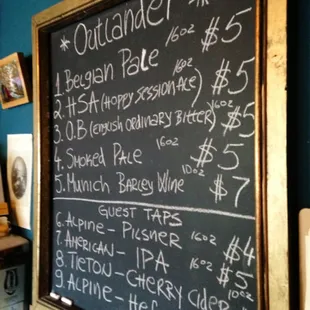 * Outlander *
1. Belgian Pale 16oz $5
2. HSA (Hoppy Session Ale) 16oz $5
3. O.B (English Ordinary Bitter) 16oz $5
4. Smoked Pale 16oz $5
5. Munich Barley Wine 10oz $7
Guest Taps
6. Alpine - Pilsner 16oz $4
7. American - IPA 16oz $5
8. Tieton - Cherry Cider 10oz
9. Alpine - Hef